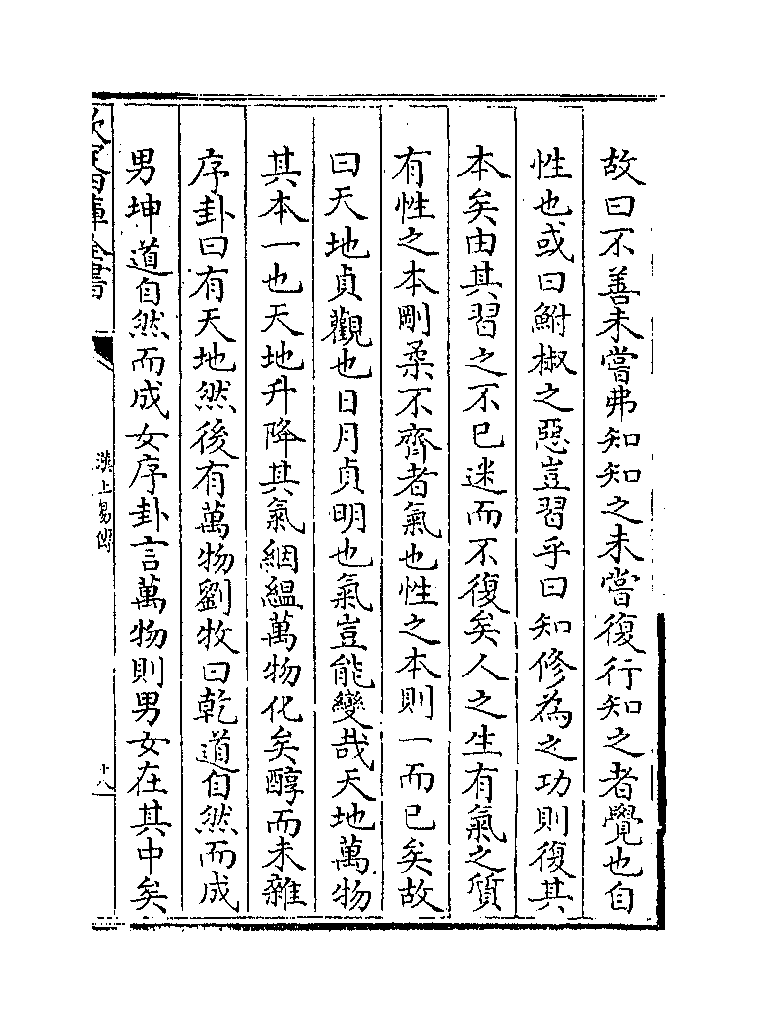 故曰不善未嘗弗知知之未嘗復行知之者覺也自
性也或曰鮒椒之惡豈習乎曰知修為之功則復其
本矣由其習之不已迷而不復矣人之生有氣之質
有性之本剛柔不齊者氣也性之本則一而已矣故
曰天地貞觀也日月貞明也氣豈能變哉天地萬物
其本一也天地升降其氣絪縕萬物化矣醇而未雜
序卦曰有天地然後有萬物劉牧曰乾道自然而成
男坤道自然而成女序卦言萬物則男女在其中矣
欽定四庫全書
漢上易傳
十八